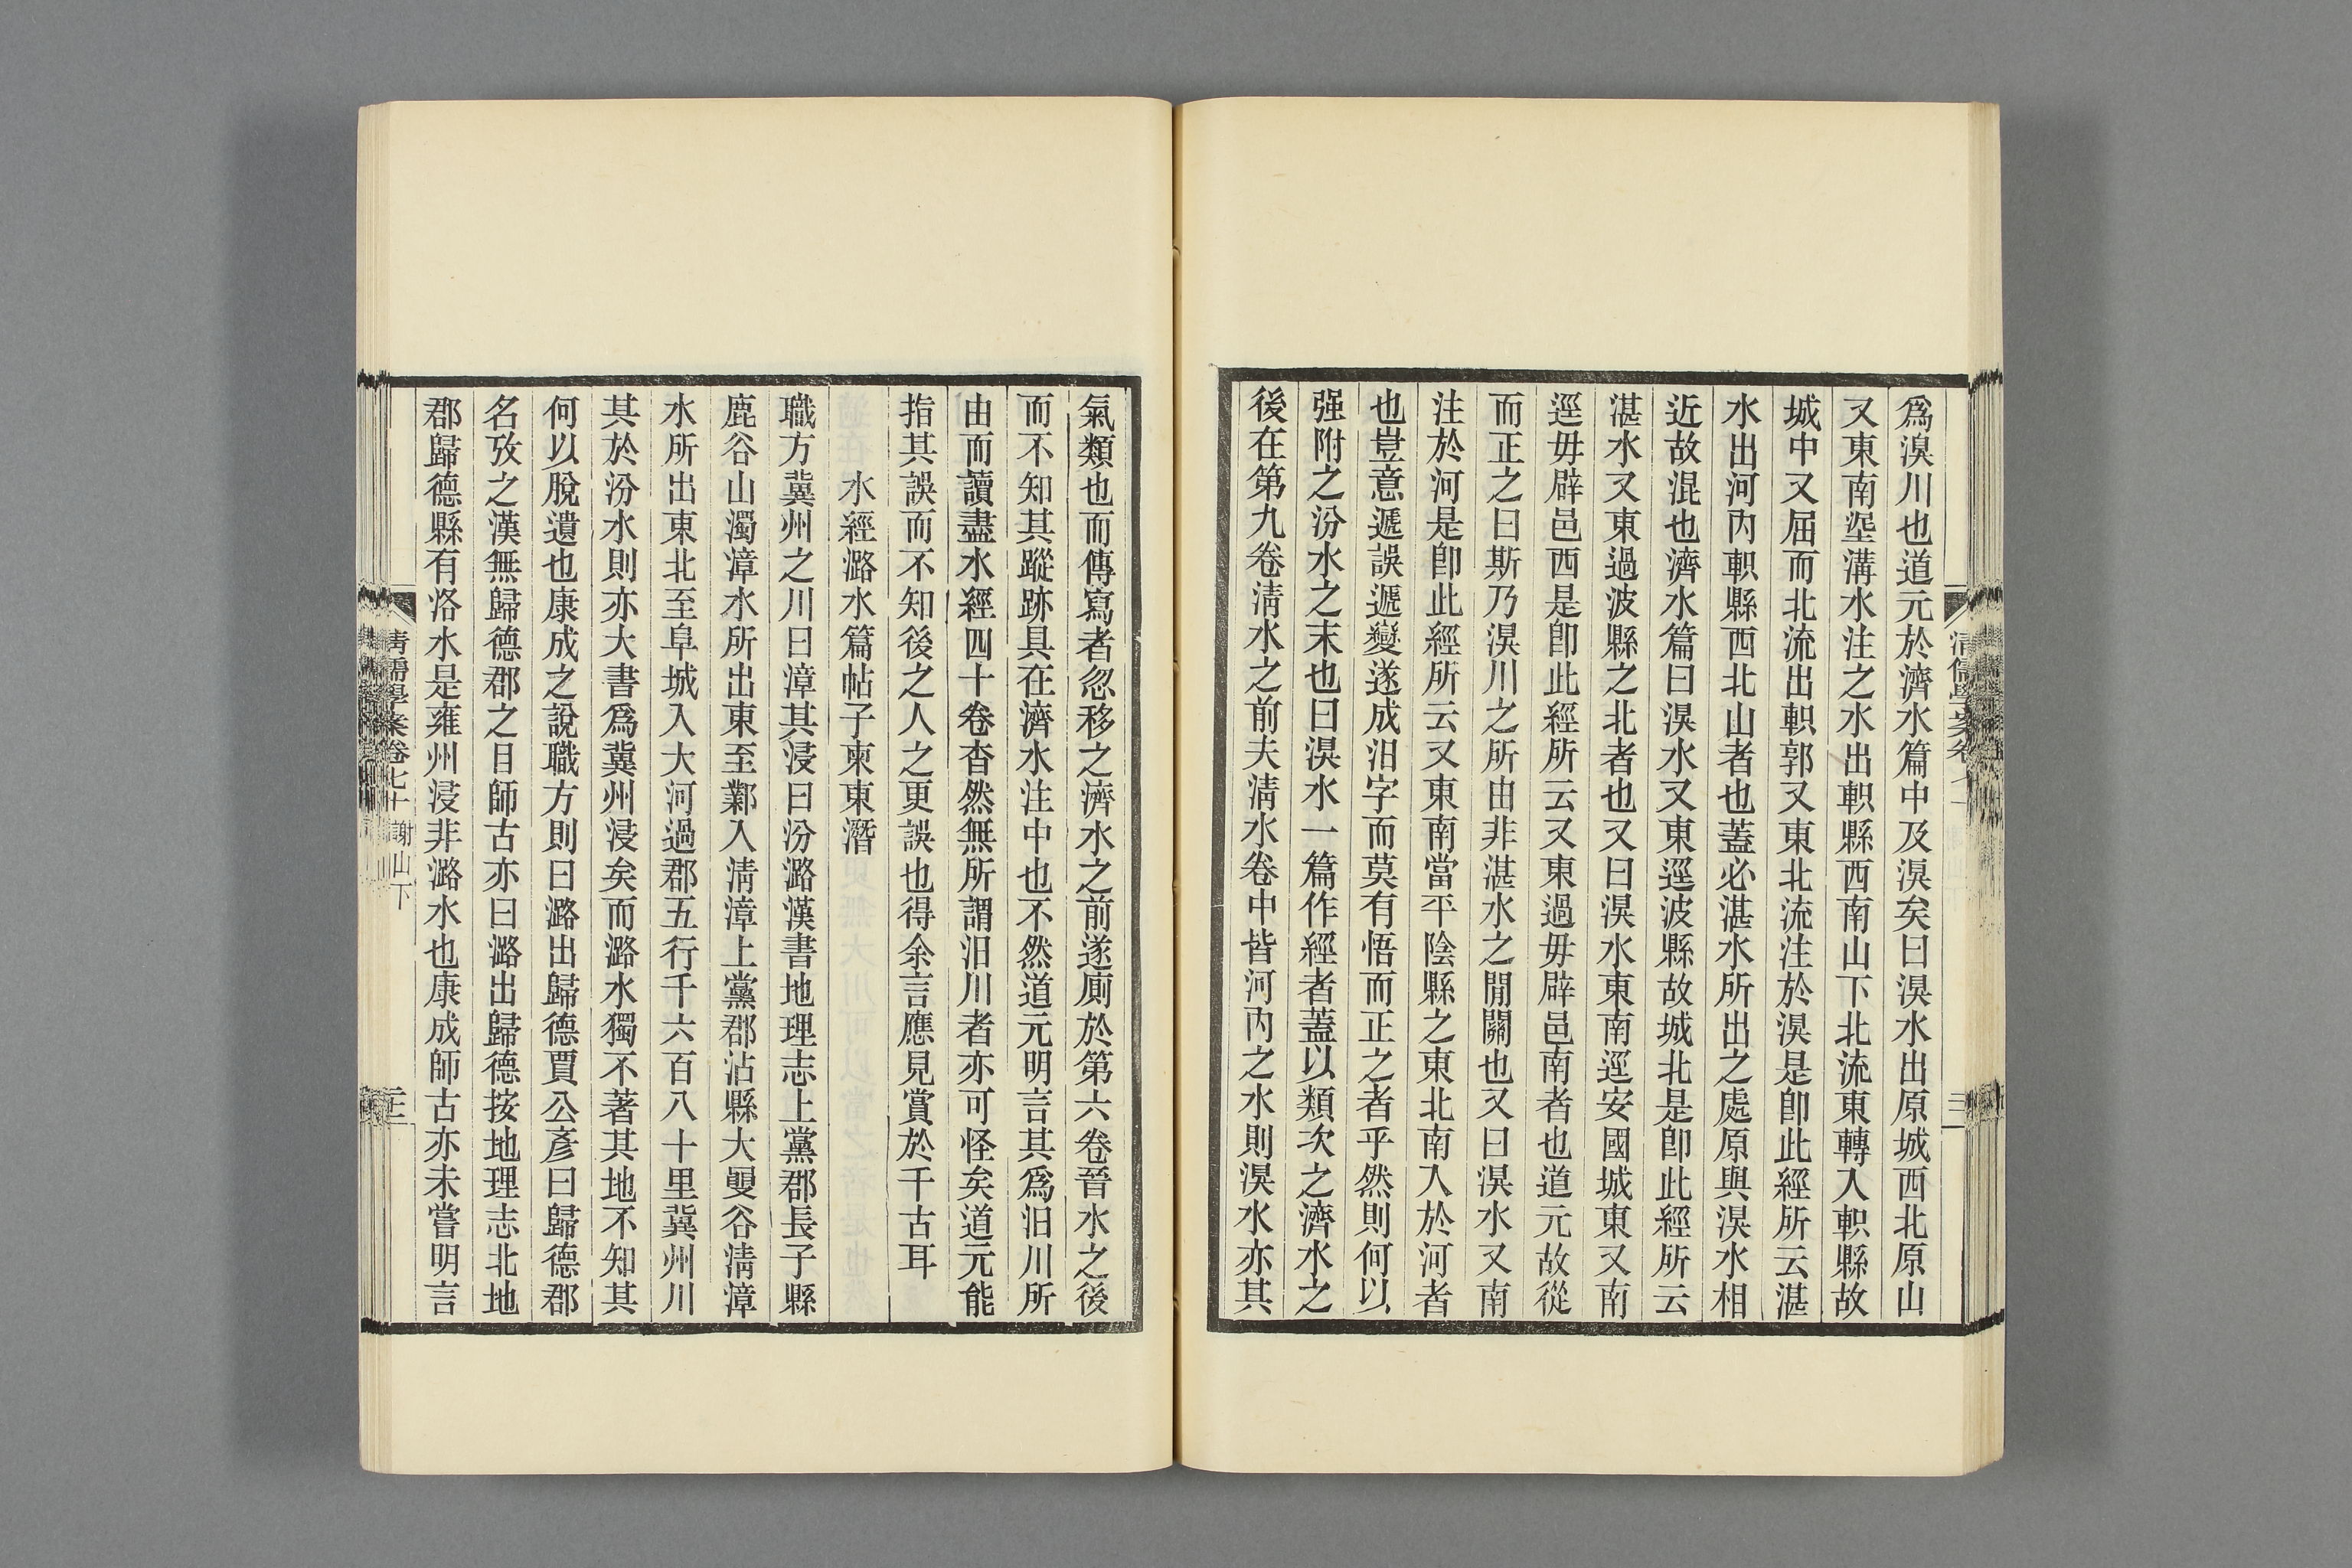 爲湨川也道元於濟水篇中及湨矣曰湨水出原城西北原山
又東南塋溝水注之水出軹縣西南山下北流東轉入軹縣故
城中又屈而北流出軹郭又東北流注於湨是卽此經所云湛
水出河內軹縣西北山者也蓋必湛水所出之處原與湨水相
近故混也濟水篇曰湨水又東逕波縣故城北是卽此經所云
湛水又東過波縣之北者也又曰湨水東南逕安國城東又南
逕毋辟邑西是卽此經所云又東過毋辟邑南者也道元故從
而正之曰斯乃湨川之所由非湛水之閒關也又曰湨水又南
注於河是卽此經所云又東南當平陰縣之東北南入於河者
也豈意遞誤遞變遂成汨字而莫有悟而正之者乎然則何以
强附之汾水之末也曰湨水一篇作經者蓋以類次之濟水之
後在第九卷淸水之前夫淸水卷中皆河內之水則湨水亦其
氣類也而傳寫者忽移之濟水之前遂廁於第六卷晉水之後
而不知其蹤跡具在濟水注中也不然道元明言其爲汨川所
由而讀盡水經四十卷杳然無所謂汨川者亦可怪矣道元能
指其誤而不知後之人之更誤也得余言應見賞於千古耳
水經潞水篇帖子柬東潛
職方冀州之川曰漳其浸曰汾潞漢書地理志上黨郡長子縣
鹿谷山濁漳水所出東至鄴入淸漳上黨郡沾縣大㕠谷淸漳
水所出東北至阜城入大河過郡五行千六百八十里冀州川
其於汾水則亦大書爲冀州浸矣而潞水獨不著其地不知其
何以脫遺也康成之說職方則曰潞出歸德賈公彥曰歸德郡
名攷之漢無歸德郡之目師古亦曰潞出歸德按地理志北地
郡歸德縣有洛水是雍州浸非潞水也康成師古亦未嘗明言
淸儒學案卷七十 謝山下